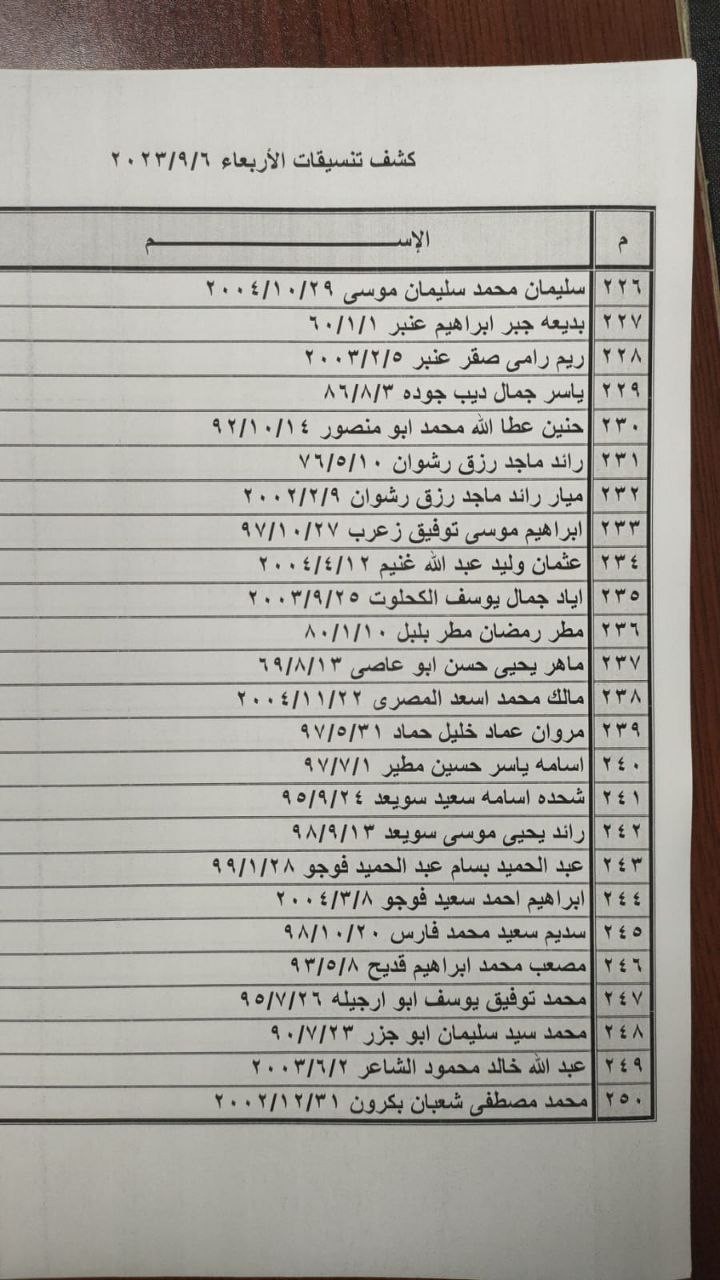 كشف تنسيقات الأربعاء ٢٠٢٣/٩/٦
م الإســـــــــــــــــــــــــم
٢٢٦ سليمان محمد سليمان موسى ٢٠٠٤/١٠/٢٩
٢٢٧ بديعه جبر ابراهيم عنبر ٦٠/١/١
٢٢٨ ريم رامى صقر عنبر ٢٠٠٣/٢/٥
٢٢٩ ياسر جمال ديب جوده ٨٦/٨/٣
٢٣٠ حنين عطا الله محمد ابو منصور ٩٢/١٠/١٤
٢٣١ رائد ماجد رزق رشوان ٧٦/٥/١٠
٢٣٢ ميار رائد ماجد رزق رشوان ٢٠٠٢/٢/٩
٢٣٣ ابراهيم موسى توفيق زعرب ٩٧/١٠/٢٧
٢٣٤ عثمان وليد عبد الله غنيم ٢٠٠٤/٤/١٢
٢٣٥ اياد جمال يوسف الكحلوت ٢٠٠٣/٩/٢٥
٢٣٦ مطر رمضان مطر بلبل ٨٠/١/١٠
٢٣٧ ماهر يحيى حسن ابو عاصى ٦٩/٨/١٣
٢٣٨ مالك محمد اسعد المصرى ٢٠٠٤/١١/٢٢
٢٣٩ مروان عماد خليل حماد ٩٧/٥/٣١
٢٤٠ اسامه ياسر حسين مطير ٩٧/٧/١
٢٤١ شحده اسامه سعيد سويعد ٩٥/٩/٢٤
٢٤٢ رائد يحيى موسى سويعد ٩٨/٩/١٣
٢٤٣ عبد الحميد بسام عبد الحميد فوجو ٩٩/١/٢٨
٢٤٤ ابراهيم احمد سعيد فوجو ٢٠٠٤/٣/٨
٢٤٥ سديم سعيد محمد فارس ٩٨/١٠/٢٠
٢٤٦ مصعب محمد ابراهيم قديح ٩٣/٥/٨
٢٤٧ محمد توفيق يوسف ابو ارجيله ٩٥/٧/٢٦
٢٤٨ محمد سيد سليمان ابو جزر ٩٠/٧/٢٣
٢٤٩ عبد الله خالد محمود الشاعر ٢٠٠٣/٦/٢
٢٥٠ محمد مصطفى شعبان بكرون ٢٠٠٢/١٢/٣١